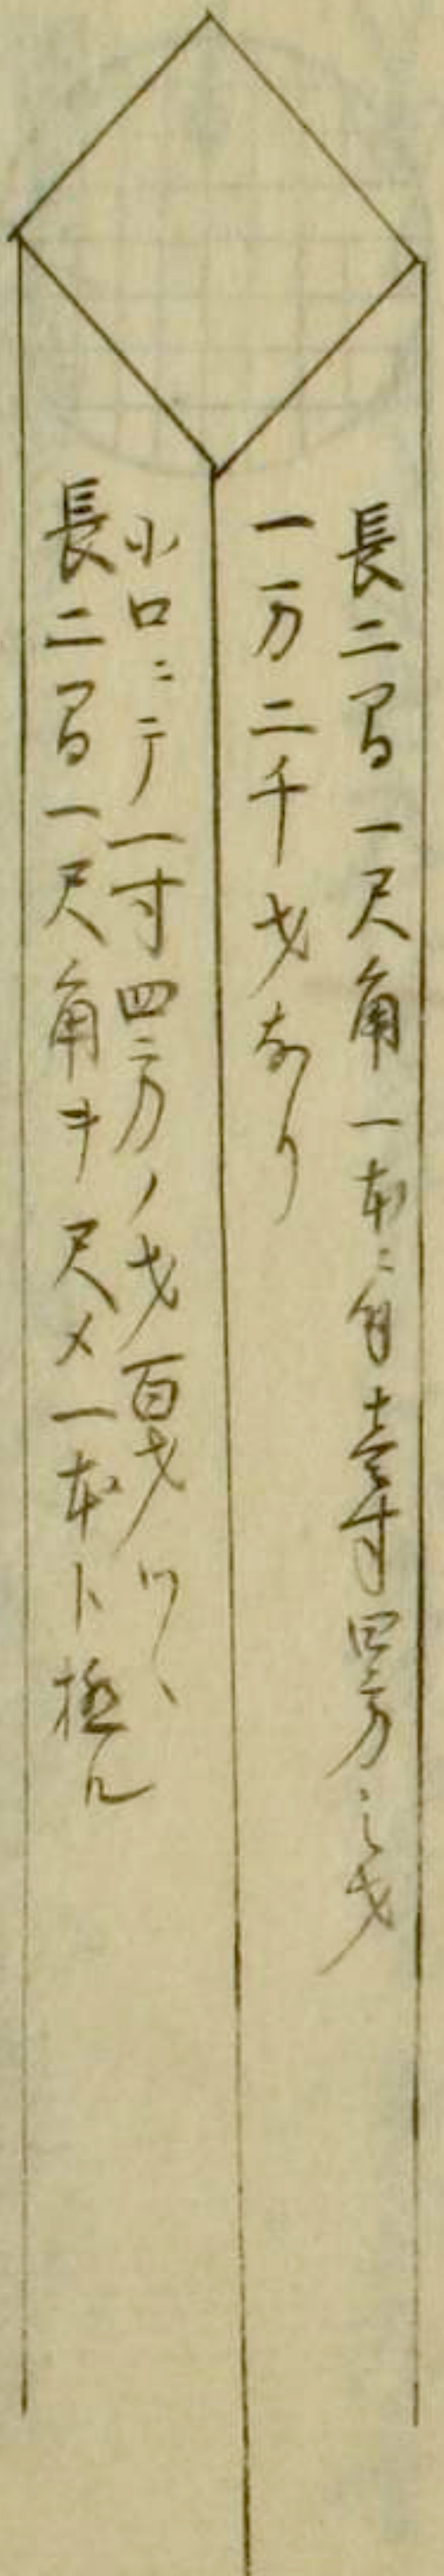 長二間一尺角一本ニ付壱寸四方之才
一万二千才なり
小口ニテ一寸四方ノ才百才ツヽ
長二間一尺角ヲ尺メ一本ト極ル